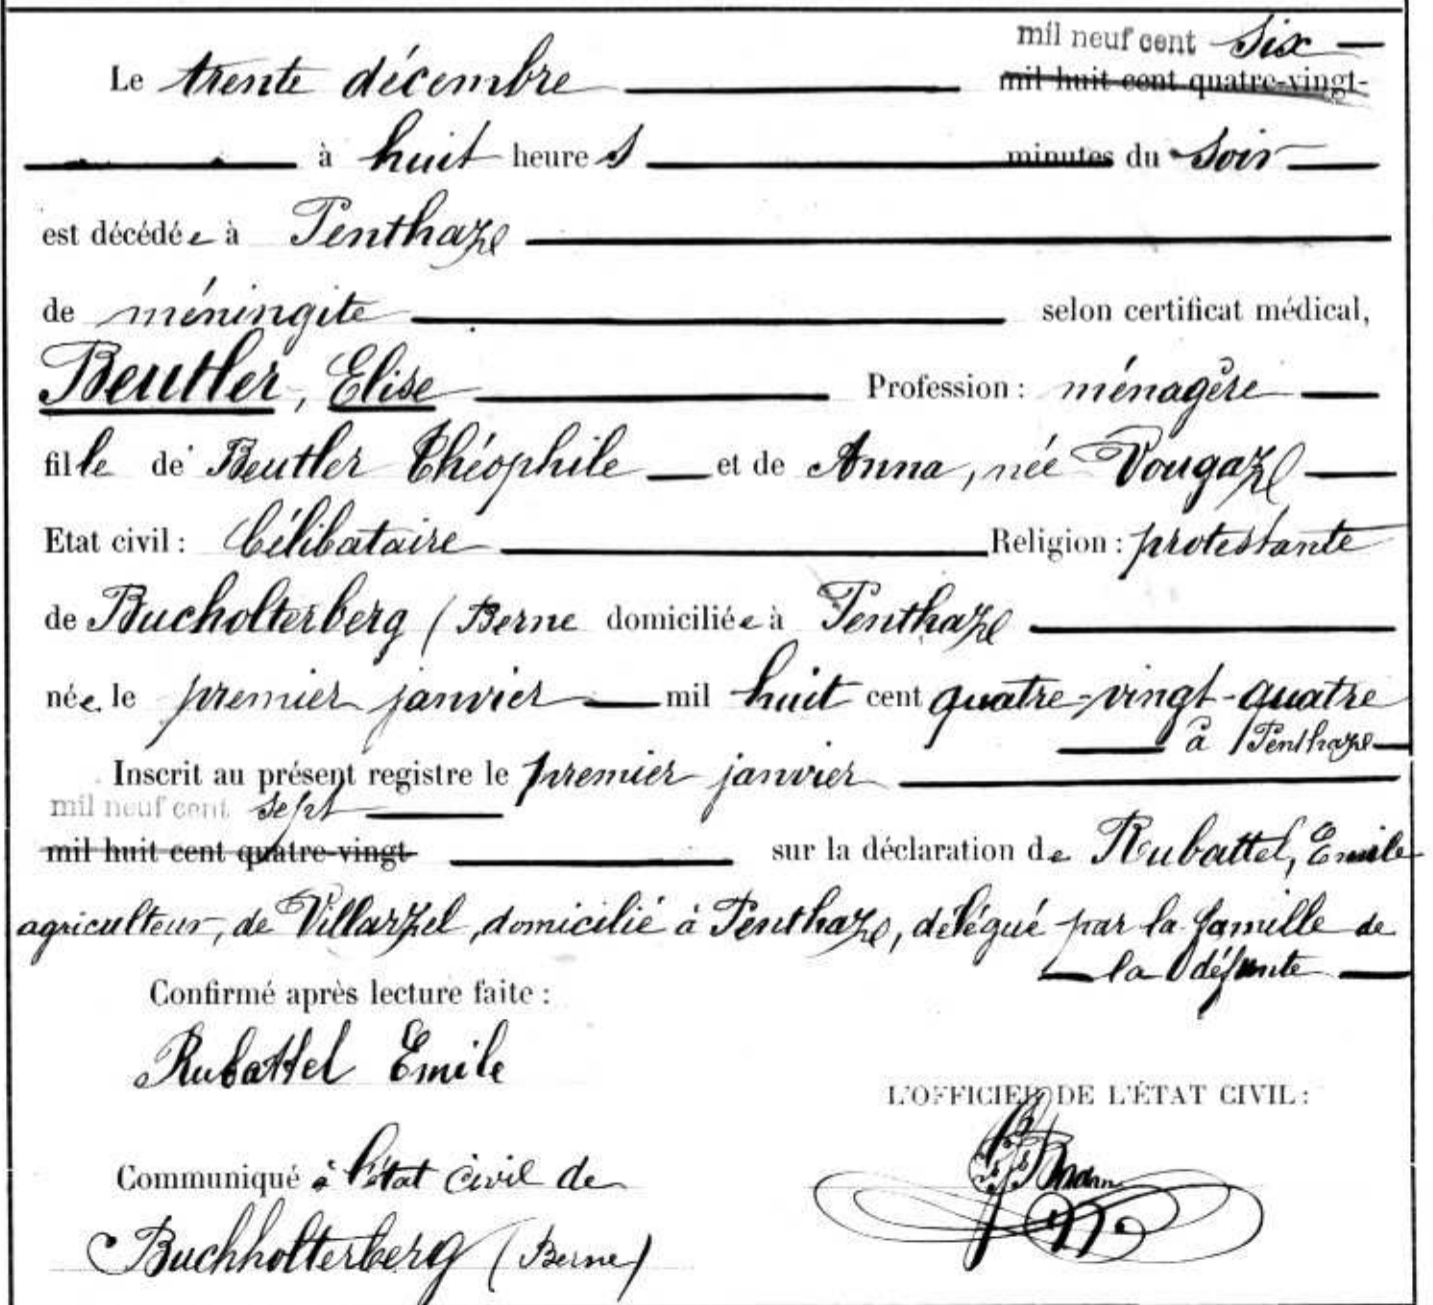 mil neuf cent six
Le trente décembre mil huit cent quatre-vingt-
à huit heures minutes du soir
est décédée à Penthaze
de méningite selon certificat médical,
Beutler, Elise Profession : ménagère
fille de Beutler Théophile et de Anna, née Vougaz
Etat civil : Célibataire Religion : protestante
de Bucholterberg (Berne domiciliée à Penthaze
née le premier janvier mil huit cent quatre-vingt-quatre
à Penthaze
Inscrit au présent registre le premier janvier
mil neuf cent sept
mil huit cent quatre-vingt sur la déclaration de Rubattel, Emile
agriculteur, de Villarzel, domicilié à Penthaze, délégué par la famille de
la défunte
Confirmé après lecture faite :
Rubattel Emile
L'OFFICIER DE L'ÉTAT CIVIL :
Communiqué à l'état civil de
Buchholterberg (Berne)